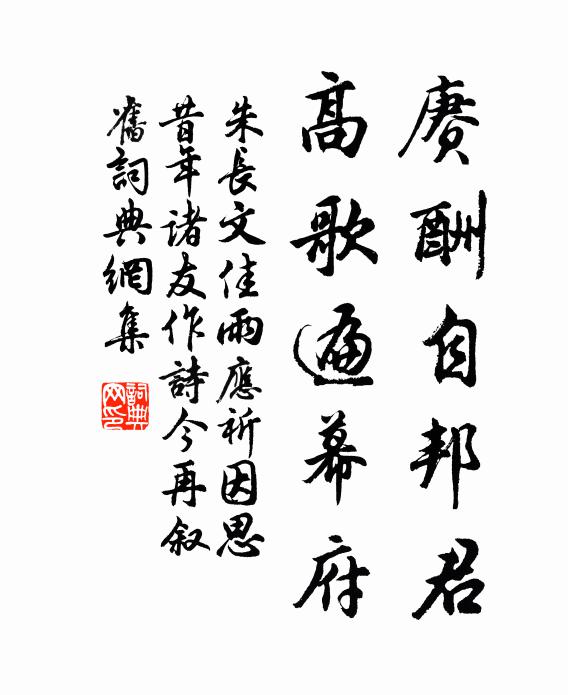 赓酬自邦君
高歌遍幕府
朱長文佳雨應祈因思
昔年诸友作詩今再叙
舊詞典網集
詞典网印